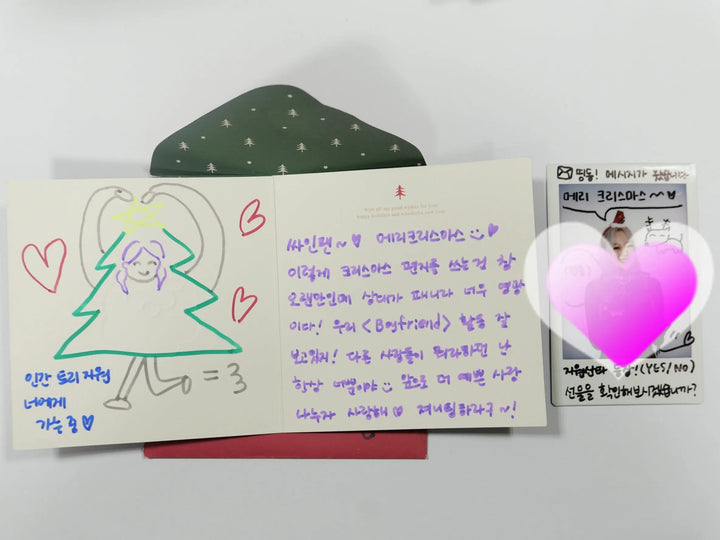 인간 트리 지원
너에게
가는 중♡
= 3
With all my good wishes for your
happy holidays and wonderful new year
싸인펜~♥ 메리크리스마스 :)♡
이렇게 크리스마스 편지를 쓰는건 참
오랜만인데 상대가 패니라 너무 영광
이다! 우리 <Boyfriend> 활동 잘
보고있지! 다른 사람들이 뭐라하던 난
항상 네뿐이야 :) 앞으로 더 예쁜 사랑
나누자 사랑해♡ 져니틸하라구~!
띵동! 메시지가
메리 크리스마스~♡
지원산타 등장!(YES/NO)
선물을 확인해보시겠습니까?